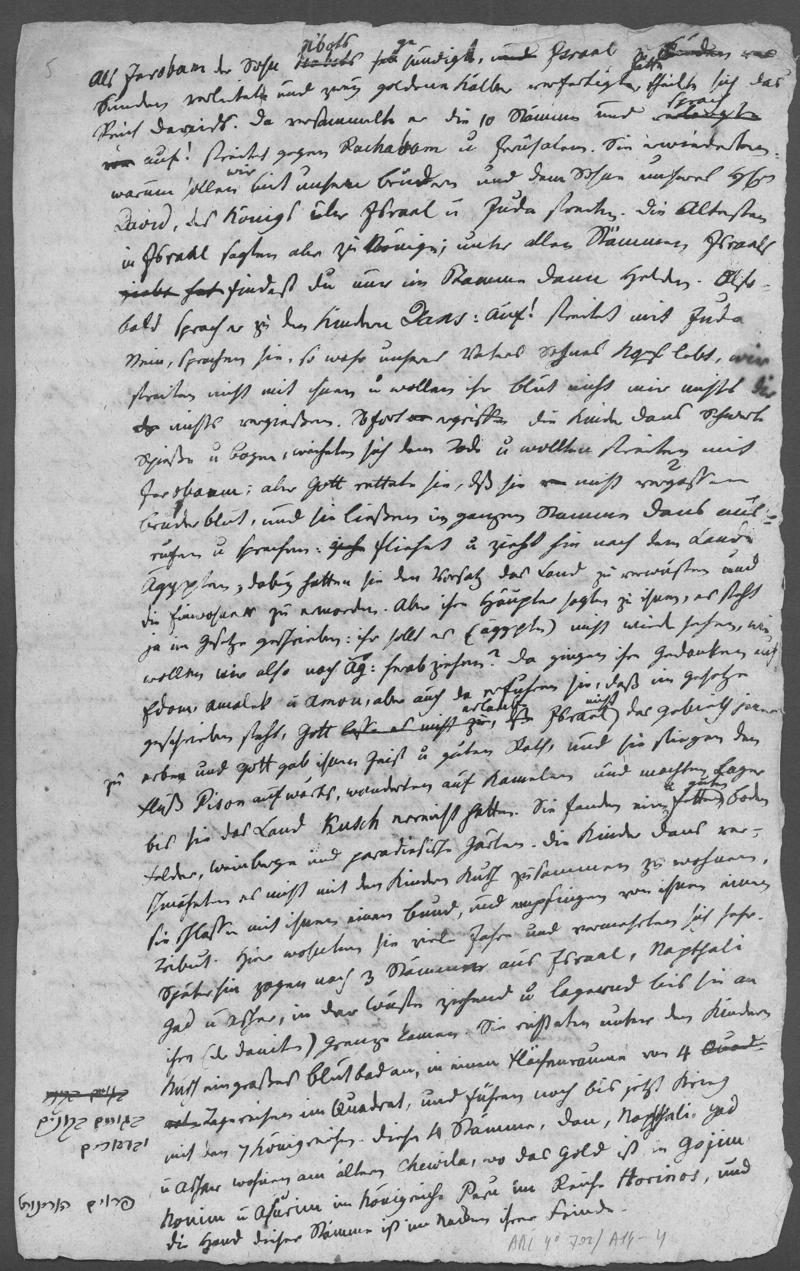 5
Als Jerobeam der Sohn Nibats sündigte, und Israel zu
Sünden verleitete und zwey goldene Kälber verfertigte, theilte sich das
Reich Davids. Da versammelte er die 10 Stämme und sprach
auf! streitet gegen Rachabeam u Jerusalem. Sie erwiederten:
warum sollen wir mit unsern Brüdern und dem Sohne unseres H
David, des Königs über Israel u Juda streiten. Die Ältesten
in Israel sagten aber zum König; unter allen Stämmen Israels
findest du nur im Stamme Dann Helden. Also-
bald sprach er zu den Kindern Dans: Auf! streitet mit Juda
Nein, sprachen sie, so wahr unseres Vaters Dan Kopf lebt, wir
streiten nicht mit ihnen u wollen ihr Blut nicht mir nichts dir
nichts vergießen. Sofort ergriffen die Kinder Dans Schwert
Spieße u Bogen, weihten sich dem Tode u wollten streiten mit
Jerobeam; aber Gott rettete sie, dß sie nicht vergossen
Bruderblut, und sie ließen im ganzen Stamme Dans aus-
rufen u sprachen: fliehet u ziehet hin nach dem Lande
Ägypten, dabey hatten sie den Vorsatz das Land zu verwüsten und
die Einwohner zu ermorden. Aber ihre Häupter sagten zu ihnen, es steht
ja im Gesetze geschrieben: ihr sollt es (Ägypten) nicht wieder sehen, wie
wollen wir also nach Äg: herabziehen? Da gingen ihre Gedanken auf
Edom Amalek u Amon, aber auch da erfuhren sie, daß im Gesetze
geschrieben steht, Gott erlaube nicht Israel das Gebieth jener
zu erben und Gott gab ihnen Geist u guten Rath, und sie stiegen den
Fluß Pison aufwärts, wanderten auf Kamelen und machten Lager
bis sie das Land Kusch erreicht hatten. Sie fanden einen fetten u guten Boden
Felder, Weinberge und paradiesische Gärten. Die Kinder Dans ver-
schmähten es nicht mit den Kindern Kusch zusammen zu wohnen,
sie schlossen mit ihnen einen Bund, und empfingen von ihnen einen
Tribut. Hier wohnten sie viele Jahre und vermehrten sich sehr.
Späterhin zogen noch 3 Stämme aus Israel, Naphthali
Gad u Asher, in der Wüste ziehend u lagernd bis sie an
ihre (de Daniten) Grenze kamen. Sie richteten unter den Kindern
Kusch ein großes Blutbad an, in einem Flächenraume von 4
Tagereisen im Quadrat, und führen noch bis jetzt Krieg
mit den 7 Königreichen. Diese 4 Stämme, Dan, Naphthali, Gad
u Asher wohnen am alten Chewila, wo das Gold ist in Gojim
Konim u Asurim im Königreiche Peru im Reiche Horinos, und
die Hand dieser Stämme ist im Nacken ihrer Feinde.
פרוים הורינוס
ARC 4° 792/A14-4